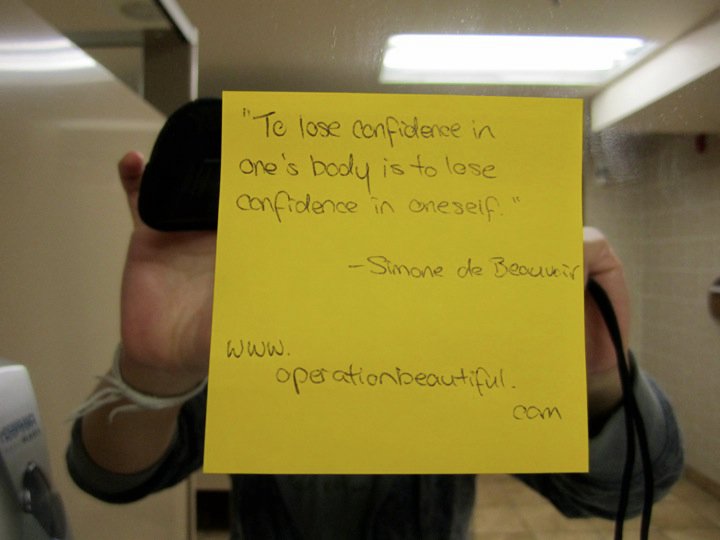 "To lose confidence in
one's body is to lose
confidence in oneself."
-Simone de Beauvoir
www.
operationbeautiful.
com